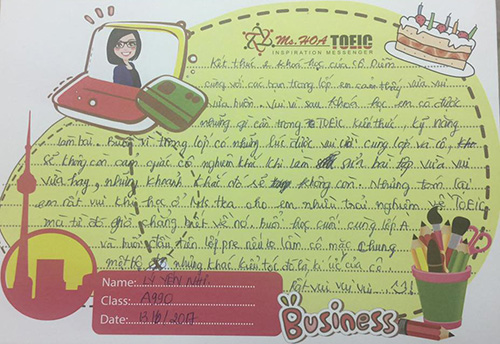 Ms. HOA TOEIC
INSPIRATION MESSENGER
Kết thúc khoá học của cô Diễm
cùng với các bạn trong lớp em cảm thấy vừa vui
vừa buồn. Vui vì sau khoá học em có được
những gì cần trong TOEIC kiến thức, kỹ năng
làm bài. Buồn vì trong lớp có những lúc được vui cười cùng lớp và cô, kho
sẽ không còn cảm giác cô nghiêm khắc khi làm sửa bài tập vừa vui
vừa hay, những khoảnh khắc đó sẽ không còn. Nhưng tóm lại
em rất vui khi học ở Ms Hoa cho em nhiều trải nghiệm về TOEIC
mà từ đó giờ chẳng biết về nó. buổi học cuối cùng lớp A
và buổi đầu tiên lớp pre nếu có mặc chung
một những khác kiểu tóc đó là kí ức của cô.
Rất vui vui vui... <33
Name: LÝ YẾN NHI
Class: A990
Date: 13/6/2017
Business